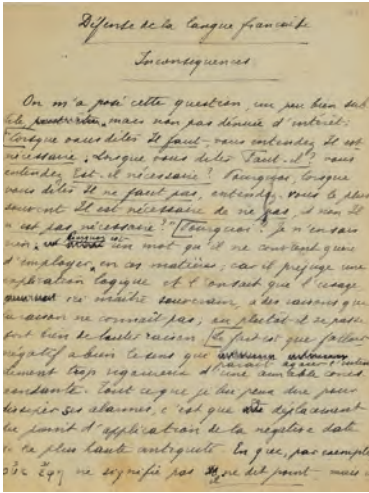 Défense de la langue française
Inconséquences
On m'a posé cette question, un peu bien sub
tile, mais non pas dénuée d'intérêt:
"Lorsque vous dites Il faut, vous entendez Il est
nécessaire; lorsque vous dites Faut-il? vous
entendez Est-il nécessaire? Pourquoi, lorsque
vous dites Il ne faut pas, entendez-vous le plus
souvent Il est nécessaire de ne pas, et non Il
n'est pas nécessaire?" Pourquoi? Je n'en sais
rien, un mot qu'il ne convient guère
d'employer, en ces matières; car il préjuge une
explication logique et l'on sait que l'usage
ce maître souverain, a des raisons que
la raison ne connaît pas; ou plutôt il se passe
fort bien de toute raison. Le fait est que falloir
négatif a bien le sens que
trop rigoureux d'une aimable corres
pondante. Tout ce que je puis dire pour
dissiper ses alarmes, c'est que ce déplacement
du point d'application de la négative date
de la plus haute antiquité. En grec, par exemple
οὐκ ἔφη ne signifie pas ne dit point mais